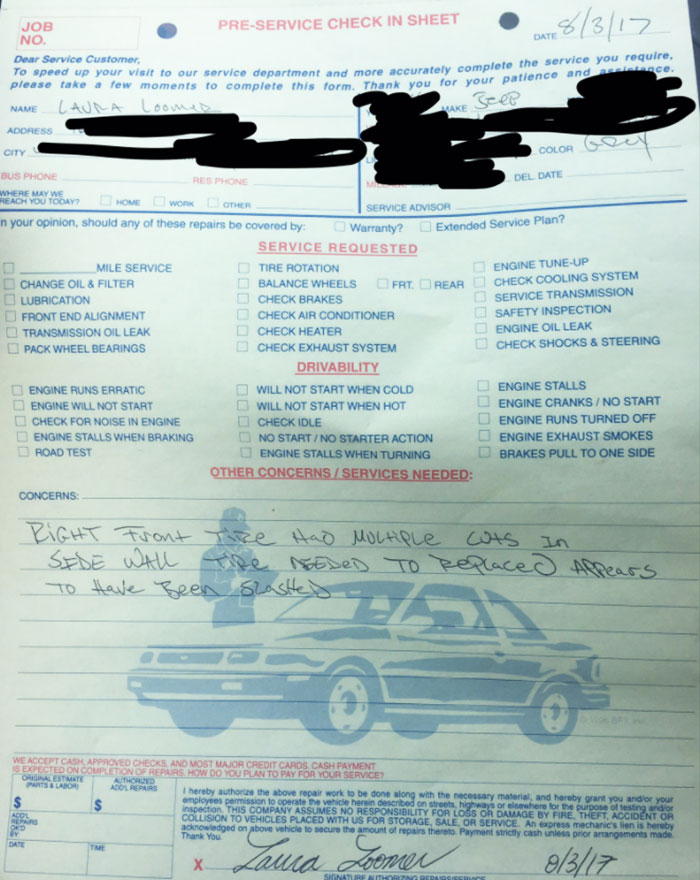 JOB NO.
PRE-SERVICE CHECK IN SHEET
DATE 8/3/17
Dear Service Customer,
To speed up your visit to our service department and more accurately complete the service you require,
please take a few moments to complete this form. Thank you for your patience and assistance.
NAME LAURA Loomer
MAKE JEEP
ADDRESS
CITY
COLOR Grey
BUS PHONE RES PHONE
DEL. DATE
WHERE MAY WE REACH YOU TODAY? HOME WORK OTHER
SERVICE ADVISOR
n your opinion, should any of these repairs be covered by: Warranty? Extended Service Plan?
SERVICE REQUESTED
MILE SERVICE TIRE ROTATION ENGINE TUNE-UP
CHANGE OIL & FILTER BALANCE WHEELS FRT. REAR CHECK COOLING SYSTEM
LUBRICATION CHECK BRAKES SERVICE TRANSMISSION
FRONT END ALIGNMENT CHECK AIR CONDITIONER SAFETY INSPECTION
TRANSMISSION OIL LEAK CHECK HEATER ENGINE OIL LEAK
PACK WHEEL BEARINGS CHECK EXHAUST SYSTEM CHECK SHOCKS & STEERING
DRIVABILITY
ENGINE RUNS ERRATIC WILL NOT START WHEN COLD ENGINE STALLS
ENGINE WILL NOT START WILL NOT START WHEN HOT ENGINE CRANKS / NO START
CHECK FOR NOISE IN ENGINE CHECK IDLE ENGINE RUNS TURNED OFF
ENGINE STALLS WHEN BRAKING NO START / NO STARTER ACTION ENGINE EXHAUST SMOKES
ROAD TEST ENGINE STALLS WHEN TURNING BRAKES PULL TO ONE SIDE
OTHER CONCERNS / SERVICES NEEDED:
CONCERNS:
RIGHT Front Tire HAD MULTIPLE CUTS In
SIDE WALL TIRE NEEDED TO REPLACED APPears
TO Have Been SLASHED
WE ACCEPT CASH, APPROVED CHECKS, AND MOST MAJOR CREDIT CARDS. CASH PAYMENT
IS EXPECTED ON COMPLETION OF REPAIRS. HOW DO YOU PLAN TO PAY FOR YOUR SERVICE?
ORIGINAL ESTIMATE (PARTS & LABOR) AUTHORIZED ADD'L REPAIRS
$ $
ADD'L REPAIRS OK'D BY
DATE TIME
I hereby authorize the above repair work to be done along with the necessary material, and hereby grant you and/or your
employees permission to operate the vehicle herein described on streets, highways or elsewhere for the purpose of testing and/or
inspection. THIS COMPANY ASSUMES NO RESPONSIBILITY FOR LOSS OR DAMAGE BY FIRE, THEFT, ACCIDENT OR
COLLISION TO VEHICLES PLACED WITH US FOR STORAGE, SALE, OR SERVICE. An express mechanic's lien is hereby
acknowledged on above vehicle to secure the amount of repairs thereto. Payment strictly cash unless prior arrangements made.
Thank You.
X Laura Loomer 8/3/17
SIGNATURE AUTHORIZING REPAIRS/SERVICE